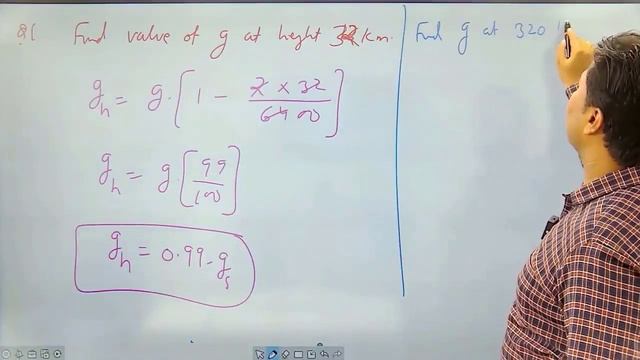 Q1 Find value of g at height 32 km.
g_h = g.[1 - 2 x 32 / 6400]
g_h = g.[99 / 100]
g_h = 0.99 - g_s
Find g at 320